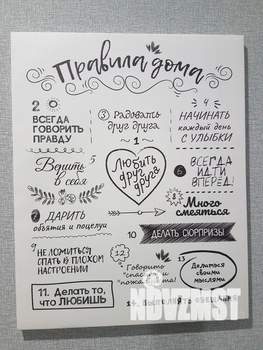 Правила дома
2 ВСЕГДА ГОВОРИТЬ ПРАВДУ
3 Радовать друг друга
4 НАЧИНАТЬ каждый день С УЛЫБКИ
1 Любить друг друга
5 Верить в себя
6 ВСЕГДА ИДТИ ВПЕРЕД!
7 ДАРИТЬ объятия и поцелуи
8 Много смеяться
9 НЕ ЛОЖИТЬСЯ СПАТЬ В ПЛОХОМ НАСТРОЕНИИ
10 ДЕЛАТЬ СЮРПРИЗЫ
11. Делать то, что ЛЮБИШЬ
12 Говорить "спасибо" и "пожалуйста"
13 Делиться своими мыслями
14. ВЫПОЛНЯТЬ ОБЕЩАНИЯ
NDVZMST